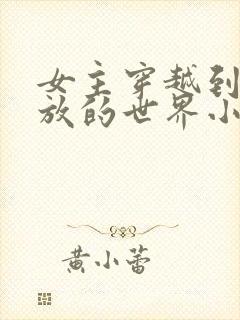 女主穿越到
放的世界小
黄小蕾